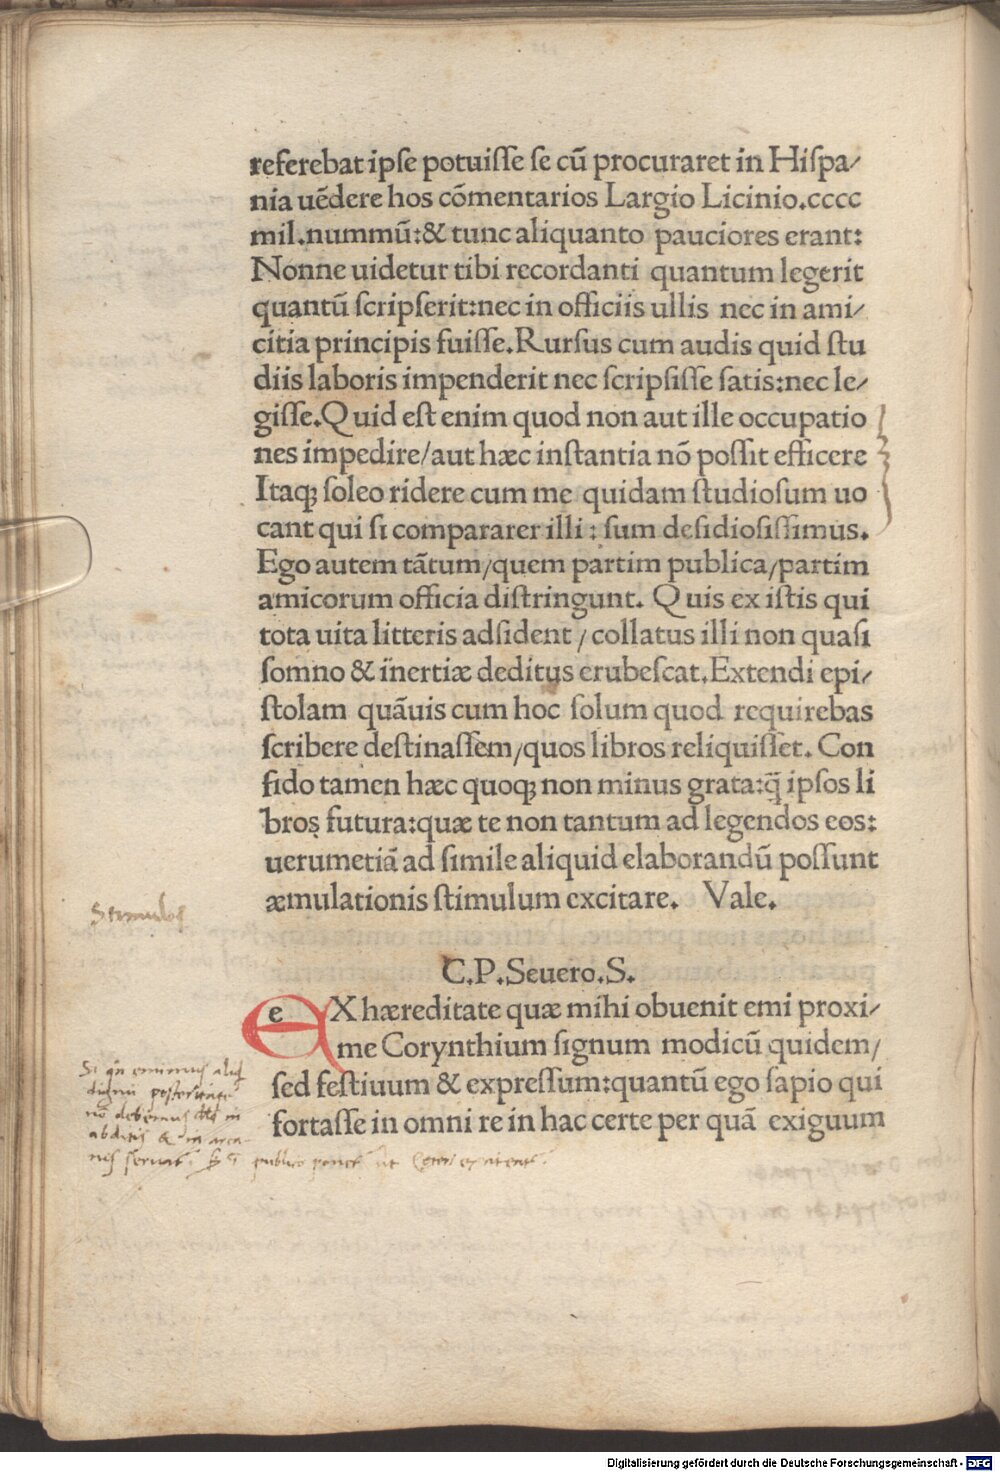 referebat ipſe potuiſſe ſe cū procuraret in Hiſpa/
nia uēdere hos cōmentarios Largio Licinio.cccc
mil.nummū:& tunc aliquanto pauciores erant:
Nonne uidetur tibi recordanti quantum legerit
quantū ſcripſerit:nec in officiis ullis nec in ami/
citia principis fuiſſe.Rurſus cum audis quid ſtu
diis laboris impenderit nec ſcripſiſſe ſatis:nec le/
giſſe.Quid eſt enim quod non aut ille occupatio
nes impedire/aut hæc inſtantia nō poſſit efficere
Itaqꝫ ſoleo ridere cum me quidam ſtudioſum uo
cant qui ſi compararer illi : ſum deſidioſiſſimus.
Ego autem tātum/quem partim publica/partim
amicorum officia diſtringunt. Quis ex iſtis qui
tota uita litteris adſident / collatus illi non quaſi
ſomno & inertiæ deditus erubeſcat.Extendi epi/
ſtolam quāuis cum hoc ſolum quod requirebas
ſcribere deſtinaſſem/quos libros reliquiſſet. Con
fido tamen hæc quoqꝫ non minus grata:q̄ ipſos li
bros futura:quæ te non tantum ad legendos eos:
uerumetiā ad ſimile aliquid elaborandū poſſunt
æmulationis ſtimulum excitare. Vale.
Stimulos
C.P.Seuero.S.
eX hæreditate quæ mihi obuenit emi proxi/
me Corynthium ſignum modicū quidem/
ſed feſtiuum & expreſſum:quantū ego ſapio qui
fortaſſe in omni re in hac certe per quā exiguum
Digitalisierung gefördert durch die Deutsche Forschungsgemeinschaft - DFG